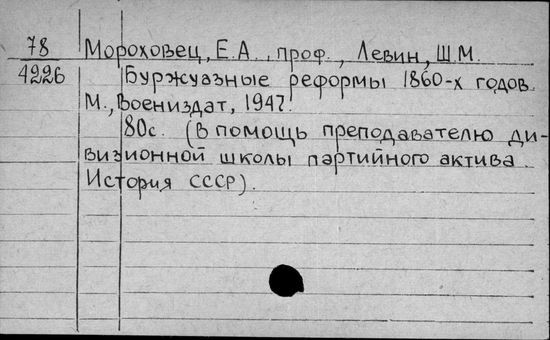 78 Мороховец, Е.А., проф., Левин, Ш.М.
4226 Буржуазные реформы 1860-х годов.
М., Воениздат, 1947.
80с. (В помощь преподавателю ди-
визионной школы партийного актива.
История СССР).